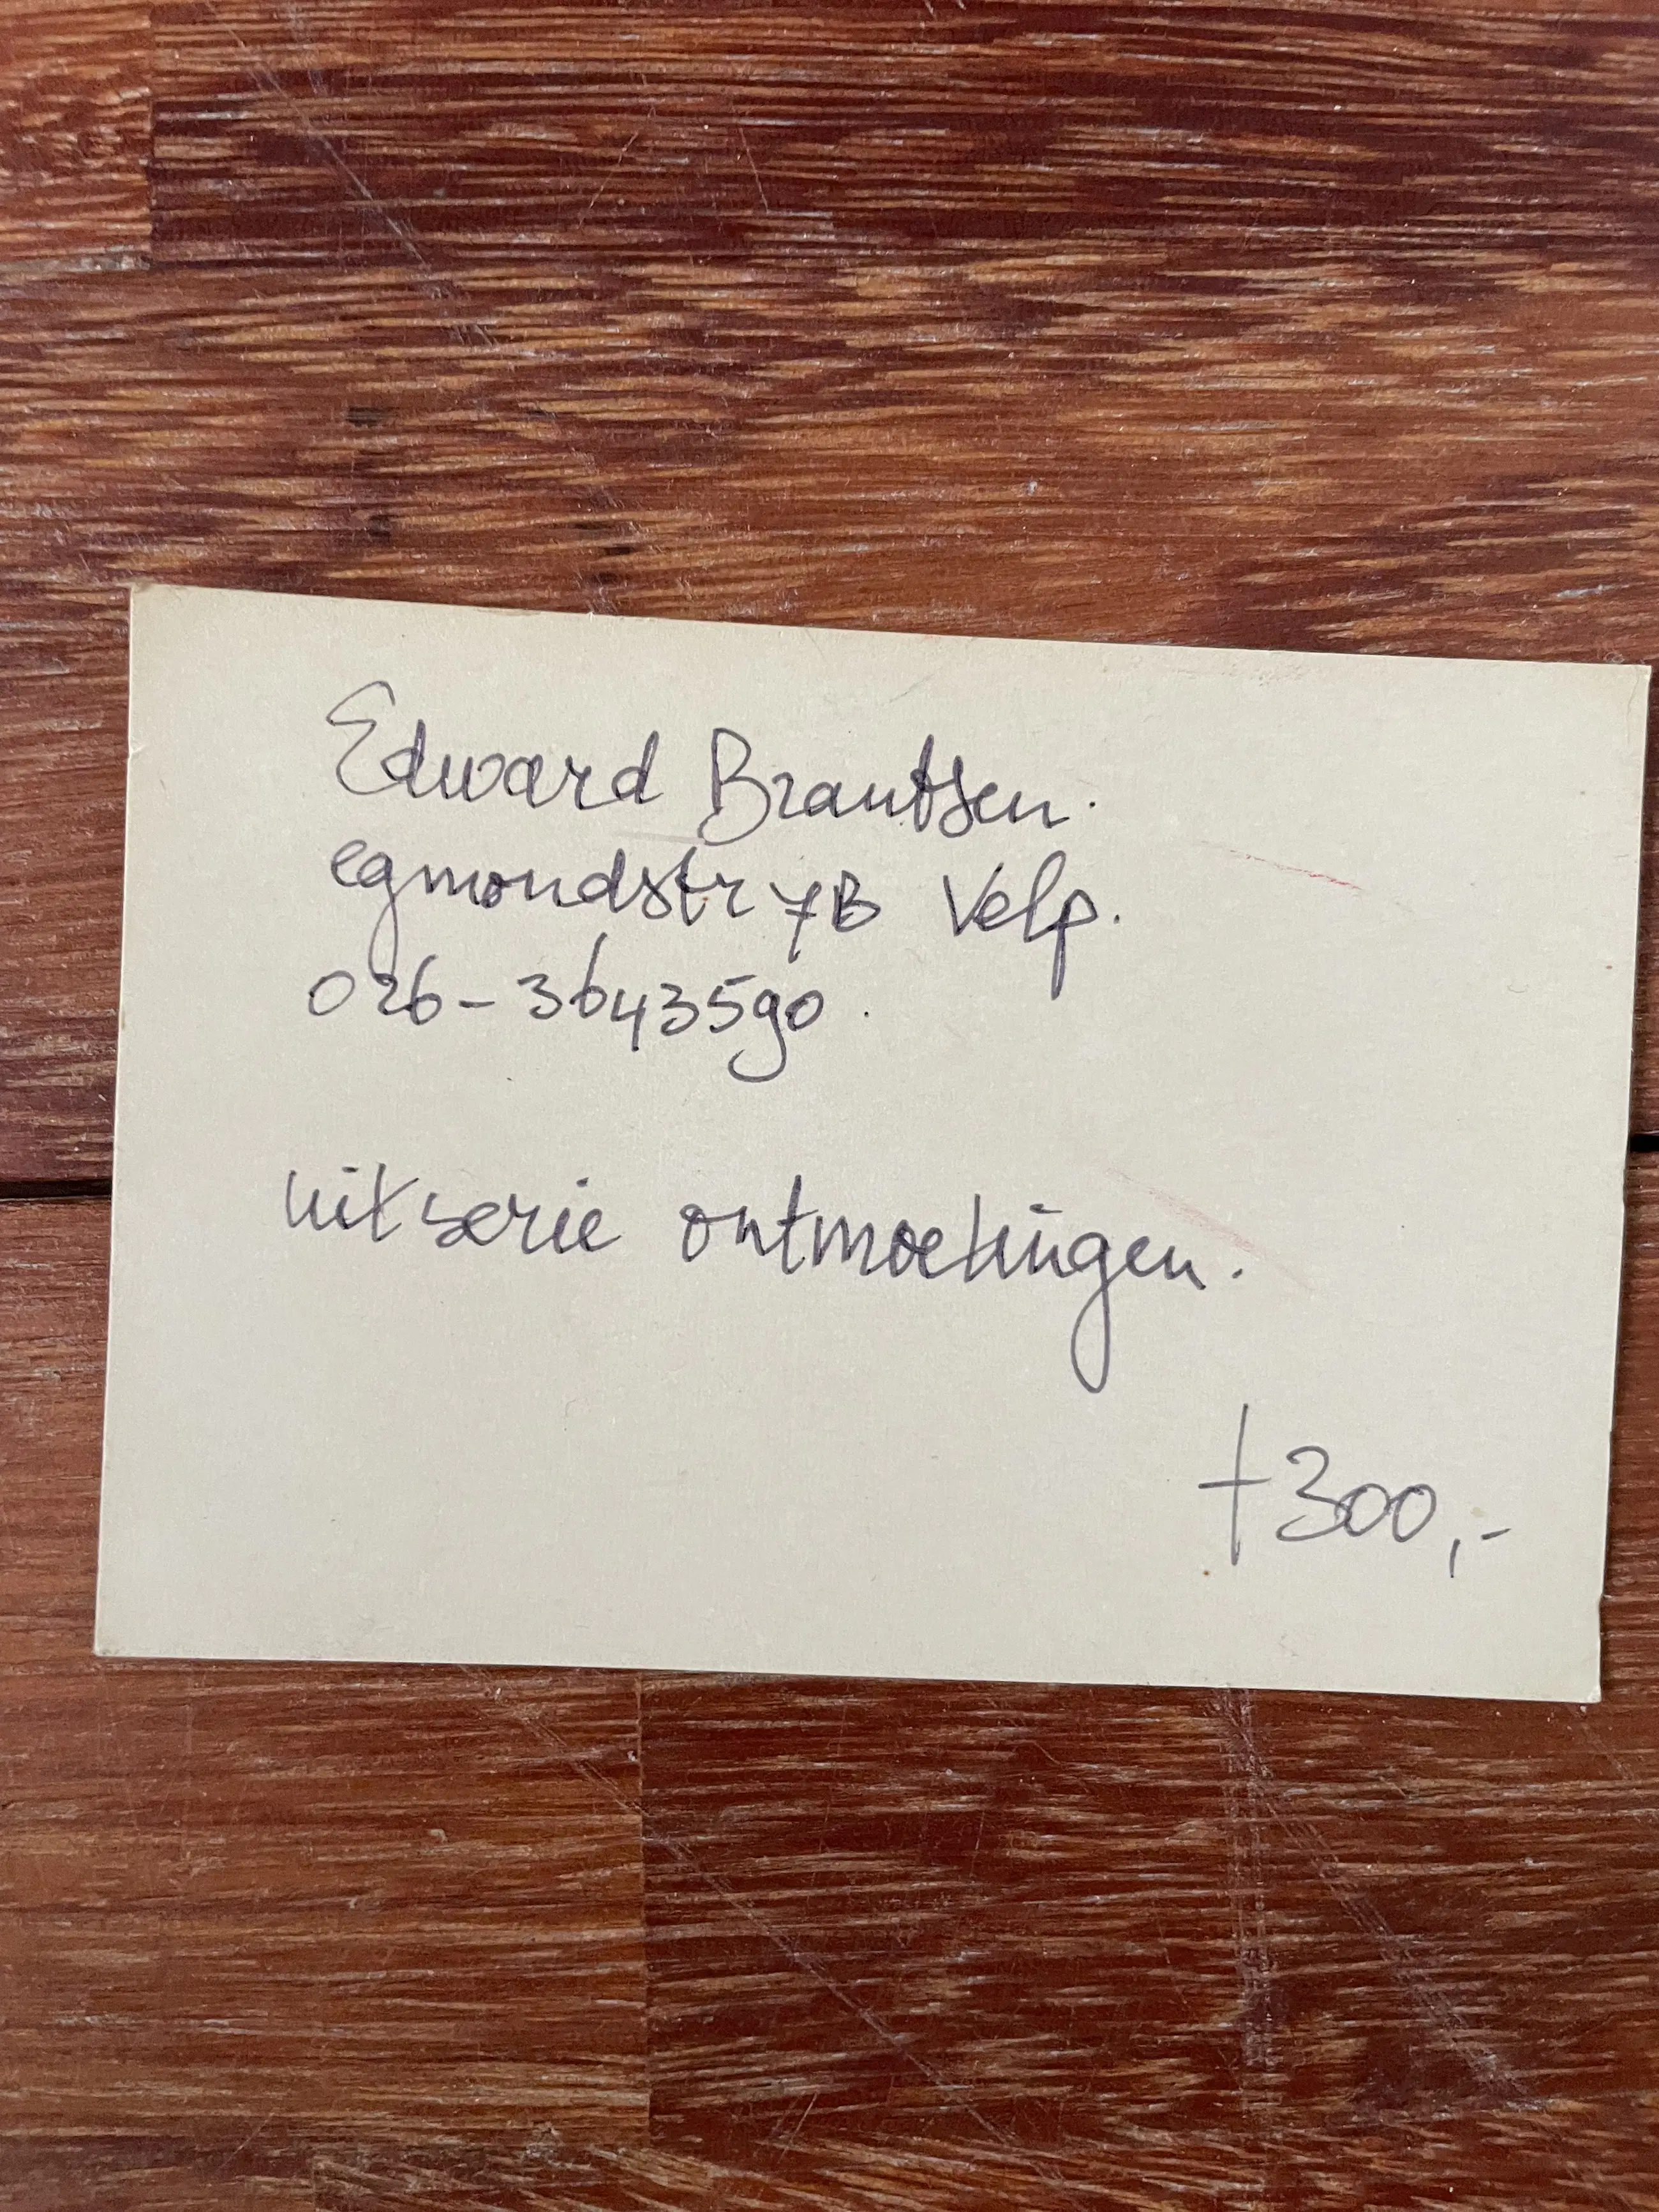 Edward Brantsen.
egmondstr 7B Velp.
026-3643590.
uit serie ontmoetingen.
f300,-